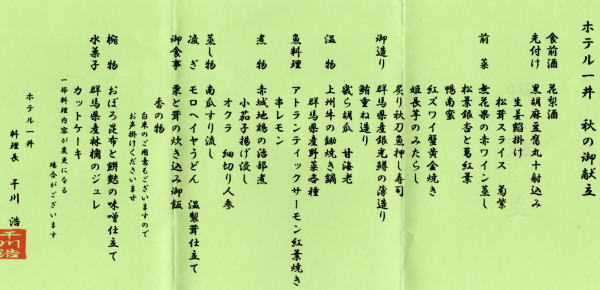 ホテル一井 秋の御献立
食前酒 花梨酒
先付け 黒胡麻豆腐丸十射込み
生姜餡掛け
松茸スライス 菊紫
前菜 無花果の赤ワイン蒸し
松葉銀杏と萵紅葉
鴨南蛮
姫長芋のみたらし
紅ズワイ蟹黄金焼き
炙り秋刀魚押し寿司
御造り 群馬県産銀光鱒の薄造り
鮪重ね造り
幾ら胡瓜 甘海老
温物 上州牛の鋤焼き鍋
群馬県産野菜各種
魚料理 アトランティックサーモン紅葉焼き
串レモン
煮物 赤城地鶏の治部煮
小茄子揚げ浸し
オクラ 細切り人参
蒸し物 南瓜すり流し
凌ぎ モロヘイヤうどん 温製茸仕立て
御食事 栗と茸の炊き込み御飯
香の物
白米のご用意もございますので
お声掛けくださいませ
椀物 おぼろ昆布と餅麩の味噌仕立て
水菓子 群馬県産林檎のジュレ
カットケーキ
一部料理内容が変更になる
場合がございます
ホテル一井
料理長 千川 浩
千川浩